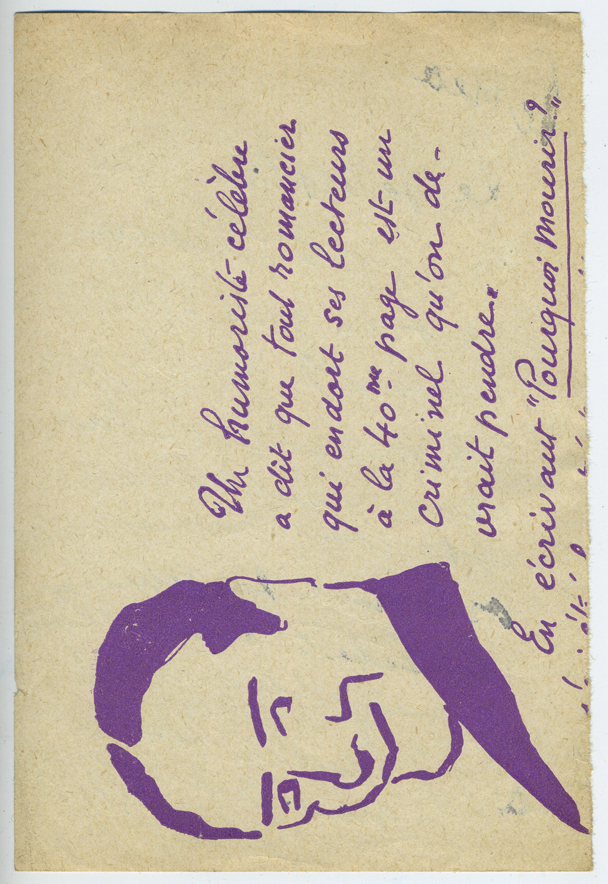 Un humoriste célèbre
a dit que tout romancier
qui endort ses lecteurs
à la 40me page est un
criminel qu'on de-
vrait pendre.
En écrivant "Pourquoi Mourir?"